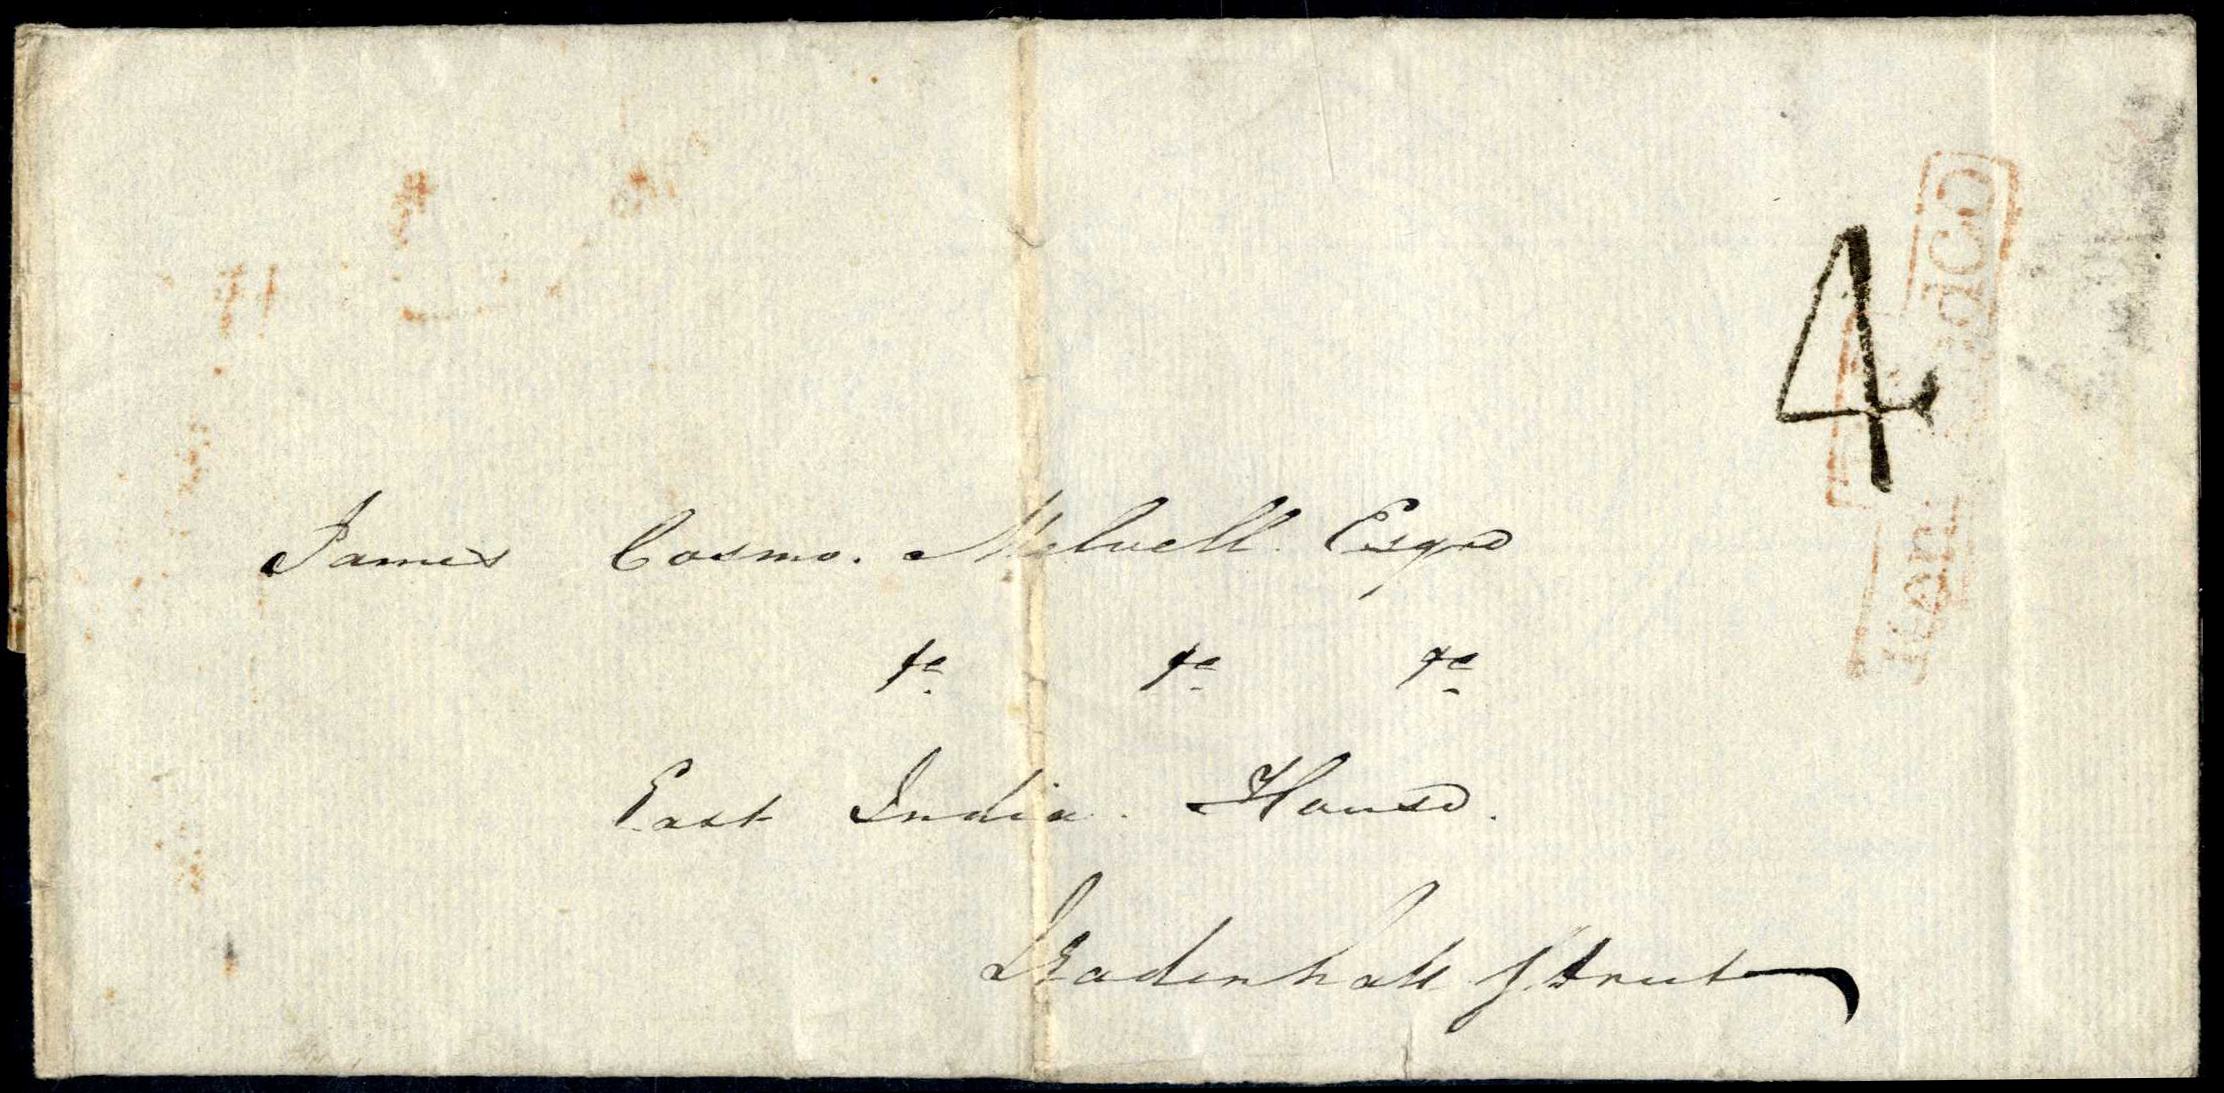 James Cosmo. Melvell Esqre
&c &c &c
East India. House.
Leadenhall Street
4